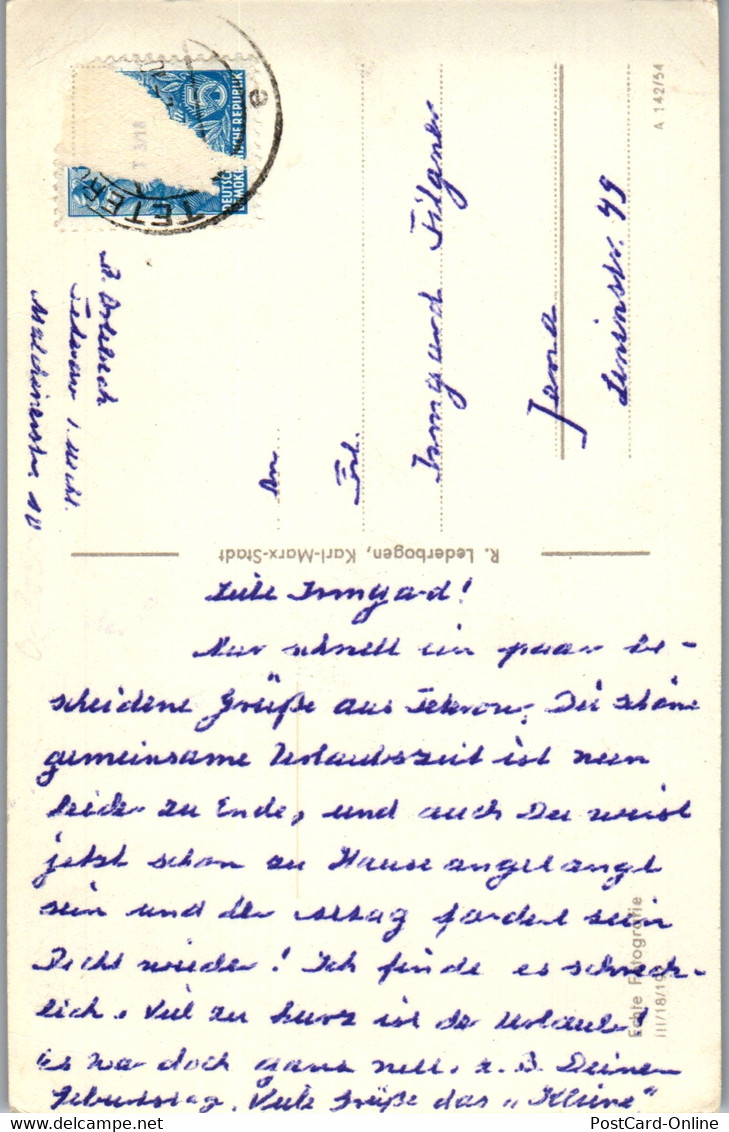 DEUTSCHE
DEMOKRATISCHE REPUBLIK
5
TETEROW
A 142/54
Teterow i. Meckl.
Malchinerstr. 10
An
Frl.
Irmgard Filgner
Jena
Leninstr. 49
R. Lederbogen, Karl-Marx-Stadt
Liebe Irmgard!
Nur schnell ein paar be-
scheidene Grüße aus Teterow. Die schöne
gemeinsame Urlaubszeit ist nun
leider zu Ende, und auch Du wirst
jetzt schon zu Hause angelangt
sein und der Alltag fordert sein
Recht wieder! Ich finde es schreck-
lich. Viel zu kurz ist der Urlaub!
Es war doch ganz nett. z. B. Deinen
Geburtstag. Viele Grüße das „Kleine"
Echte Fotografie
III/18/10
PostCard-Online